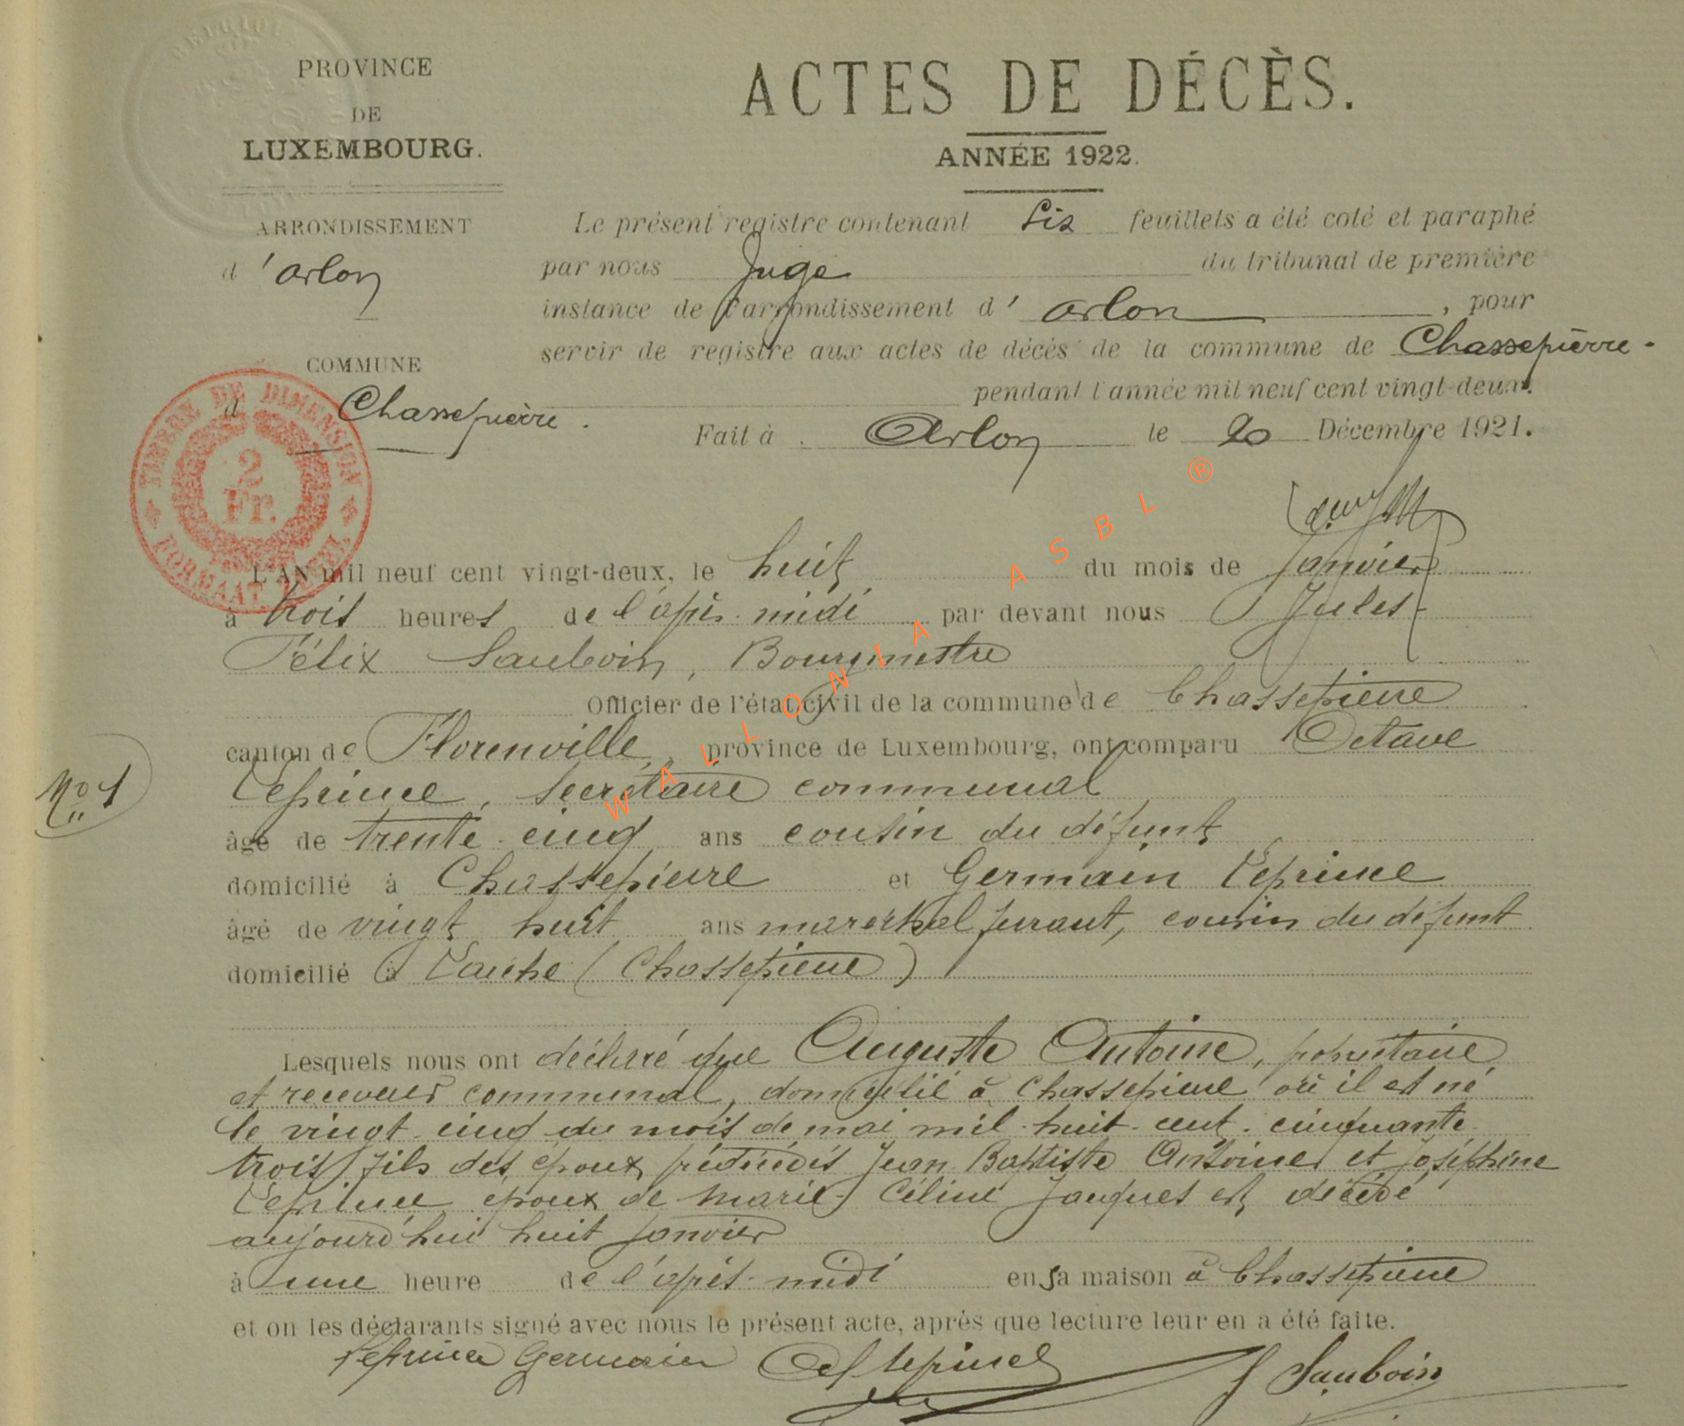 BELGIQUE
PROVINCE
DE
LUXEMBOURG.
ARRONDISSEMENT
d'Arlon
COMMUNE
d Chassepierre.
TIMBRE DE DIMENSION
2
Fr.
ACTES DE DÉCÈS.
ANNÉE 1922.
Le présent registre contenant Six feuillets a été coté et paraphé
par nous Juge du tribunal de première
instance de l'arrondissement d'Arlon, pour
servir de registre aux actes de décès de la commune de Chassepierre.
pendant l'année mil neuf cent vingt-deux.
Fait à Arlon le 20 Décembre 1921.
L'AN mil neuf cent vingt-deux, le huit du mois de Janvier
à trois heures de l'après-midi par devant nous Jules
Félix Sauboin, Bourgmestre
Officier de l'état civil de la commune de Chassepierre
canton de Florenville, province de Luxembourg, ont comparu Octave
Leprince, secrétaire communal
No 1
âgé de trente-cinq ans cousin du défunt
domicilié à Chassepierre et Germain Leprince
âgé de vingt huit ans maréchal ferrant, cousin du défunt
domicilié à Laiche (Chassepierre)
Lesquels nous ont déclaré que Auguste Antoine, propriétaire
et receveur communal, domicilié à Chassepierre où il est né
le vingt-cinq du mois de mai mil-huit-cent-cinquante-
trois, fils des époux prédécédés Jean Baptiste Antoine et Joséphine
Leprince époux de Marie Céline Jacques est décédé
aujourd'hui huit janvier
à une heure de l'après-midi en sa maison à Chassepierre
et on les déclarants signé avec nous le présent acte, après que lecture leur en a été faite.
Leprince Germain Oct Leprince J Sauboin
WALLONIA ASBL ®